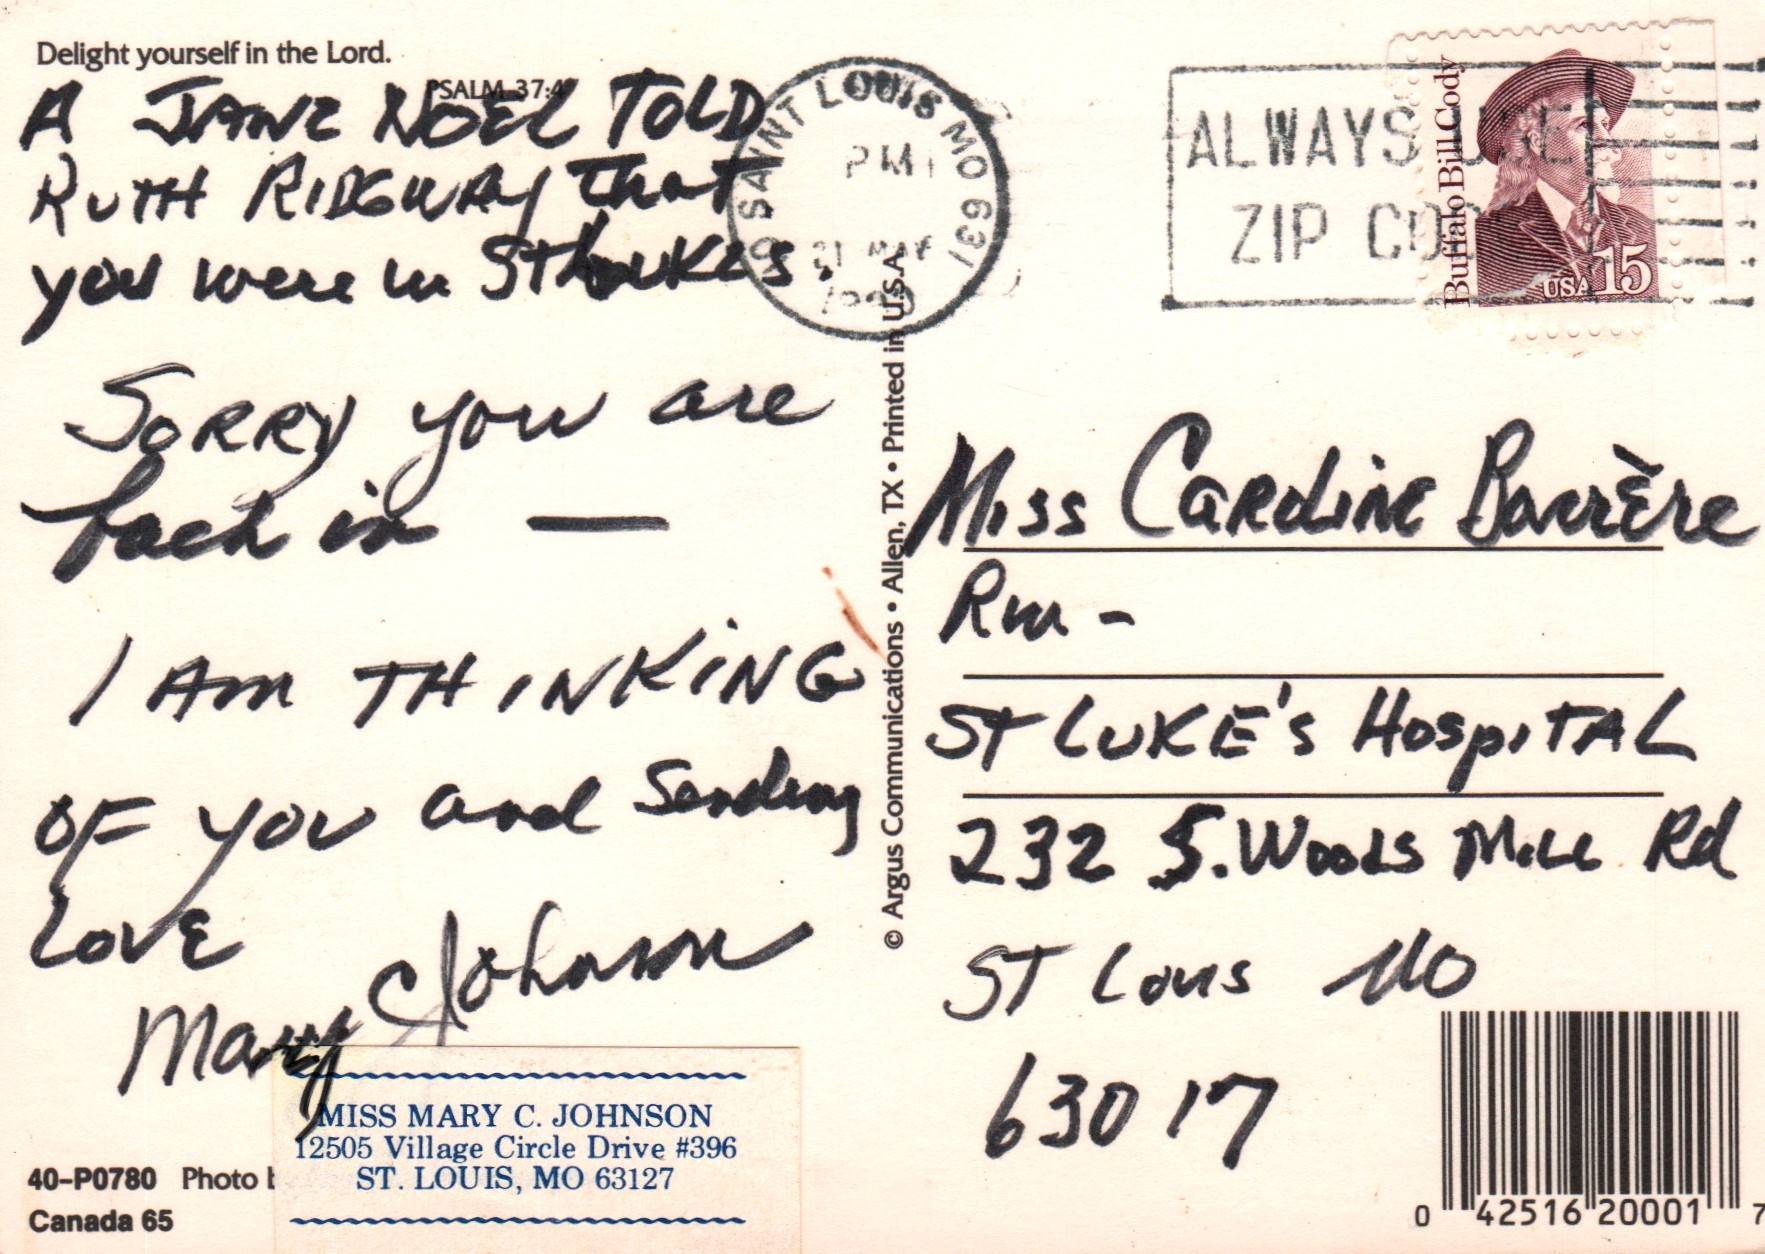 Delight yourself in the Lord.
PSALM 37:4
A JANE NOEL TOLD
RUTH RIDGWAY that
you were in St Lukes.
SORRY you are
back in —
I AM THINKING
OF YOU and Sending
LOVE
Mary C Johnson
MISS MARY C. JOHNSON
12505 Village Circle Drive #396
ST. LOUIS, MO 63127
40-P0780 Photo
Canada 65
© Argus Communications • Allen, TX • Printed in U.S.A.
SAINT LOUIS MO 631
PM
21
ALWAYS USE
ZIP CODE
Buffalo Bill Cody
USA 15
Miss Caroline Barrère
Rm -
ST LUKE'S HOSPITAL
232 S. Woods Mill Rd
ST Louis MO
63017
0 42516 20001 7